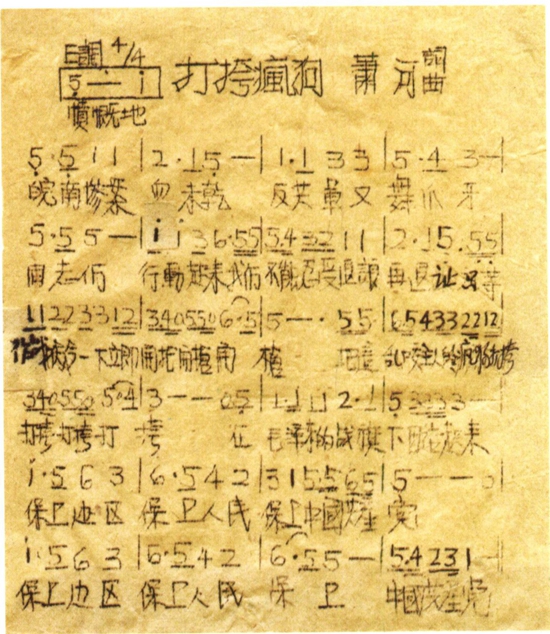 E調 4/4
5 — i 打垮瘋狗 萧河 詞曲
憤慨地
5·5 1 1 | 2·1 5 — | 1·1 3 3 | 5·4 3 —
皖南慘案 血未乾 反共軍又舞爪牙
5·5 5 — | i i 3 6·5 5 | 5 4 3 2 1 1 | 2·1 5. 5 5
同志们 行動起来我们 不能忍受退讓 再退让只等
1 1 2 2 3 3 1 2 | 3 4 0 5 5 0 6·5 | 5 — · 5 5 | 6 5 4 3 3 2 2 1 2
一下立即開花 開 槍
3 4 0 5 5 0 5 0 4 | 3 — — 0 5 | 1·1 1 1 2·1 | 5 3 3 3 3 —
打垮打垮打 垮 在 毛泽东的战旗下团结起来
i·5 6 3 | 6·5 4 2 | 3 1 5 5 6 5 | 5 — — 0
保卫边区 保卫人民 保卫中國共產党
i·5 6 3 | 6·5 4 2 | 6·5 5 — | 5.4 2 3 1 —
保卫边区 保卫人民 保 卫 中國共產党